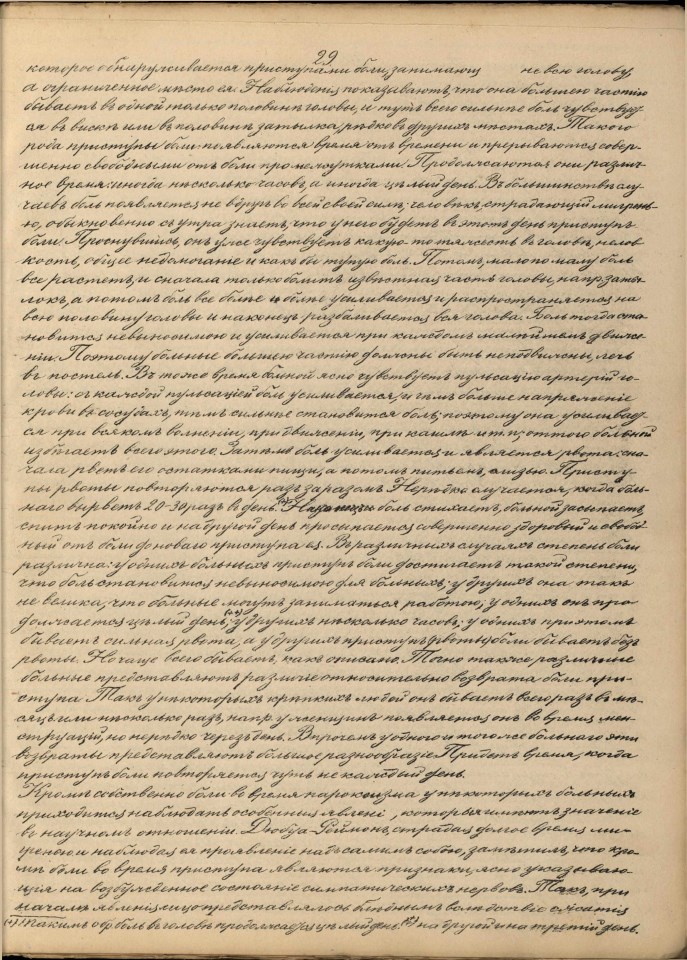 29
которое обнаруживается приступами боли, занимающ не всю голову,
а ограниченное мѣсто ея. Наблюденія показываютъ, что она большею частію
бываетъ въ одной только половинѣ головы, и тутъ всего сильнѣе боль чувствует-
ся въ вискѣ или въ половинѣ затылка, рѣдко въ другихъ мѣстахъ. Такого
рода приступы боли появляются время отъ времени и прерываются совер-
шенно свободными отъ боли промежутками. Продолжаются они различ-
ное время: иногда нѣсколько часовъ, а иногда цѣлый день. Въ большинствѣ слу-
чаевъ боль появляется не вдругъ во всей своей силѣ; человѣкъ, страдающій мигрень-
ю, обыкновенно съ утра знаетъ, что у него будетъ въ этотъ день приступъ
боли. Проснувшись, онъ уже чувствуетъ какую-то тяжесть въ головѣ, нелов
кость, общее недомоганіе и какъ бы тупую боль. Потомъ, мало по малу боль
все растетъ, и сначала только болитъ извѣстная часть головы, напр. заты-
локъ, а потомъ боль все болѣе и болѣе усиливается и распространяется на
всю половину головы и наконецъ разбаливается вся голова. Боль тогда ста-
новится невыносимою и усиливается при каждомъ малѣйшемъ движе-
ніи. Поэтому больные большею частію должны быть неподвижны, лечь
въ постель. Въ тоже время больной ясно чувствуетъ пульсацію артерій го-
ловы: съ каждой пульсаціей боль усиливается, и чѣмъ больше напряженіе
крови въ сосудахъ, тѣмъ сильнѣе становится боль; поэтому она усиливает-
ся при всякомъ волненіи, при движеніи, при кашлѣ и т. п.; оттого больной
избѣгаетъ всего этого. Затѣмъ боль усиливается и является рвота: сна-
чала рветъ его остатками пищи, а потомъ питьемъ, слизью. Присту-
пы рвоты повторяются разъ за разомъ. Нерѣдко случается, когда боль-
наго вырветъ 20-30 разъ въ день. боль стихаетъ, больной засыпаетъ
спитъ покойно и на другой день просыпается совершенно здоровый и свобод
ный отъ боли до новаго приступа ея. Въ различныхъ случаяхъ степень боли
различна: у однихъ больныхъ приступъ боли достигаетъ такой степени,
что боль становится невыносимою для больныхъ; у другихъ она такъ
не велика, что больные могутъ заниматься работою; у однихъ онъ про-
должается цѣлый день,(+*) у другихъ нѣсколько часовъ, у однихъ при этомъ
бываетъ сильная рвота, а у другихъ приступъ (рвоты) боли бываетъ безъ
рвоты. Но чаще всего бываетъ, какъ описано. Точно также, различные
больные представляютъ различіе относительно возврата боли при-
ступа. Такъ у нѣкоторыхъ крѣпкихъ людей онъ бываетъ всего разъ въ мѣ-
сяцъ или нѣсколько разъ, напр. у женщинъ появляется онъ во время мен-
струацій, но нерѣдко черезъ день. Впрочемъ у одного и того же больнаго эти
возвраты представляютъ большое разнообразіе. Придетъ время, когда
приступъ боли повторяется чуть не каждый день.
Кромѣ собственно боли во время пароксизма у нѣкоторыхъ больныхъ
приходится наблюдать особенныя явленія, которыя имѣютъ значеніе
въ научномъ отношеніи. Дюбуа-Реймонъ, страдая долгое время ми-
гренью и наблюдая ея проявленіе надъ самимъ собою, замѣтилъ, что кро-
мѣ боли во время приступа являются признаки, ясно указываю-
щія на возбужденное состояніе симпатическихъ нервовъ. Такъ, при
началѣ явленія лицо представлялось блѣднымъ вслѣдствіе сжатія
(+) Такимъ обр. боль въ головѣ продолжается цѣлый день. (+*) на другой и на третій день.